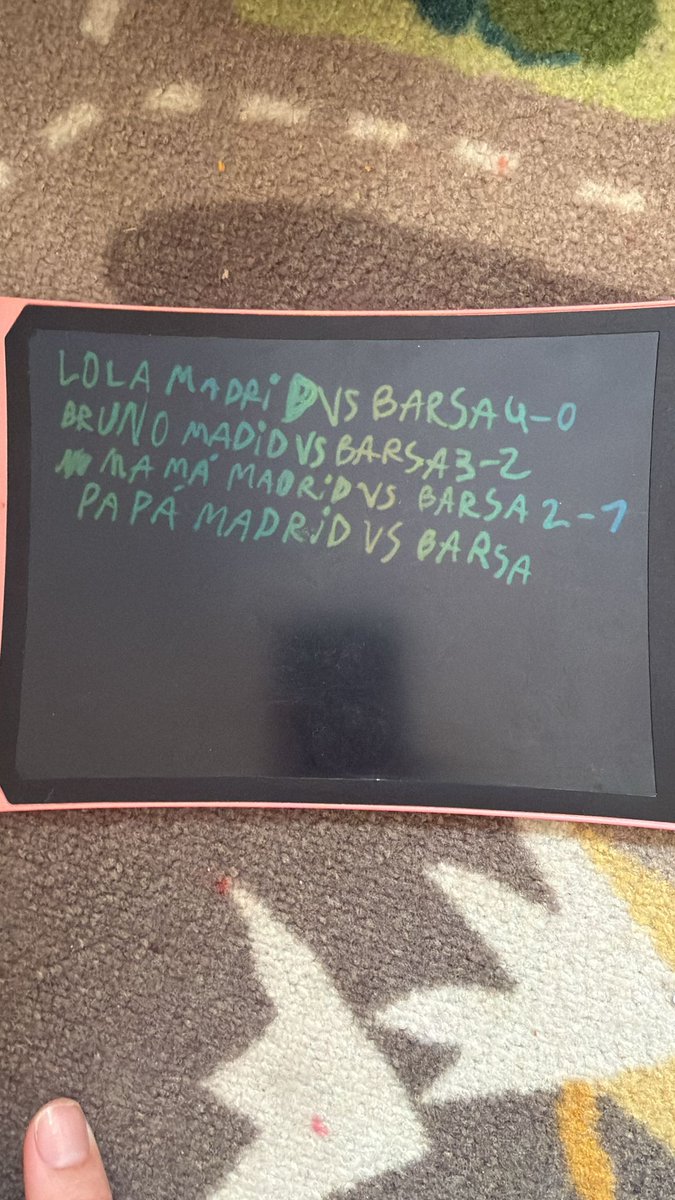 LOLA MADRiD VS BARSA 4-0
BRUNO MADiD VS BARSA 3-2
MAMÁ MADRiD VS BARSA 2-1
PAPÁ MADRiD VS BARSA